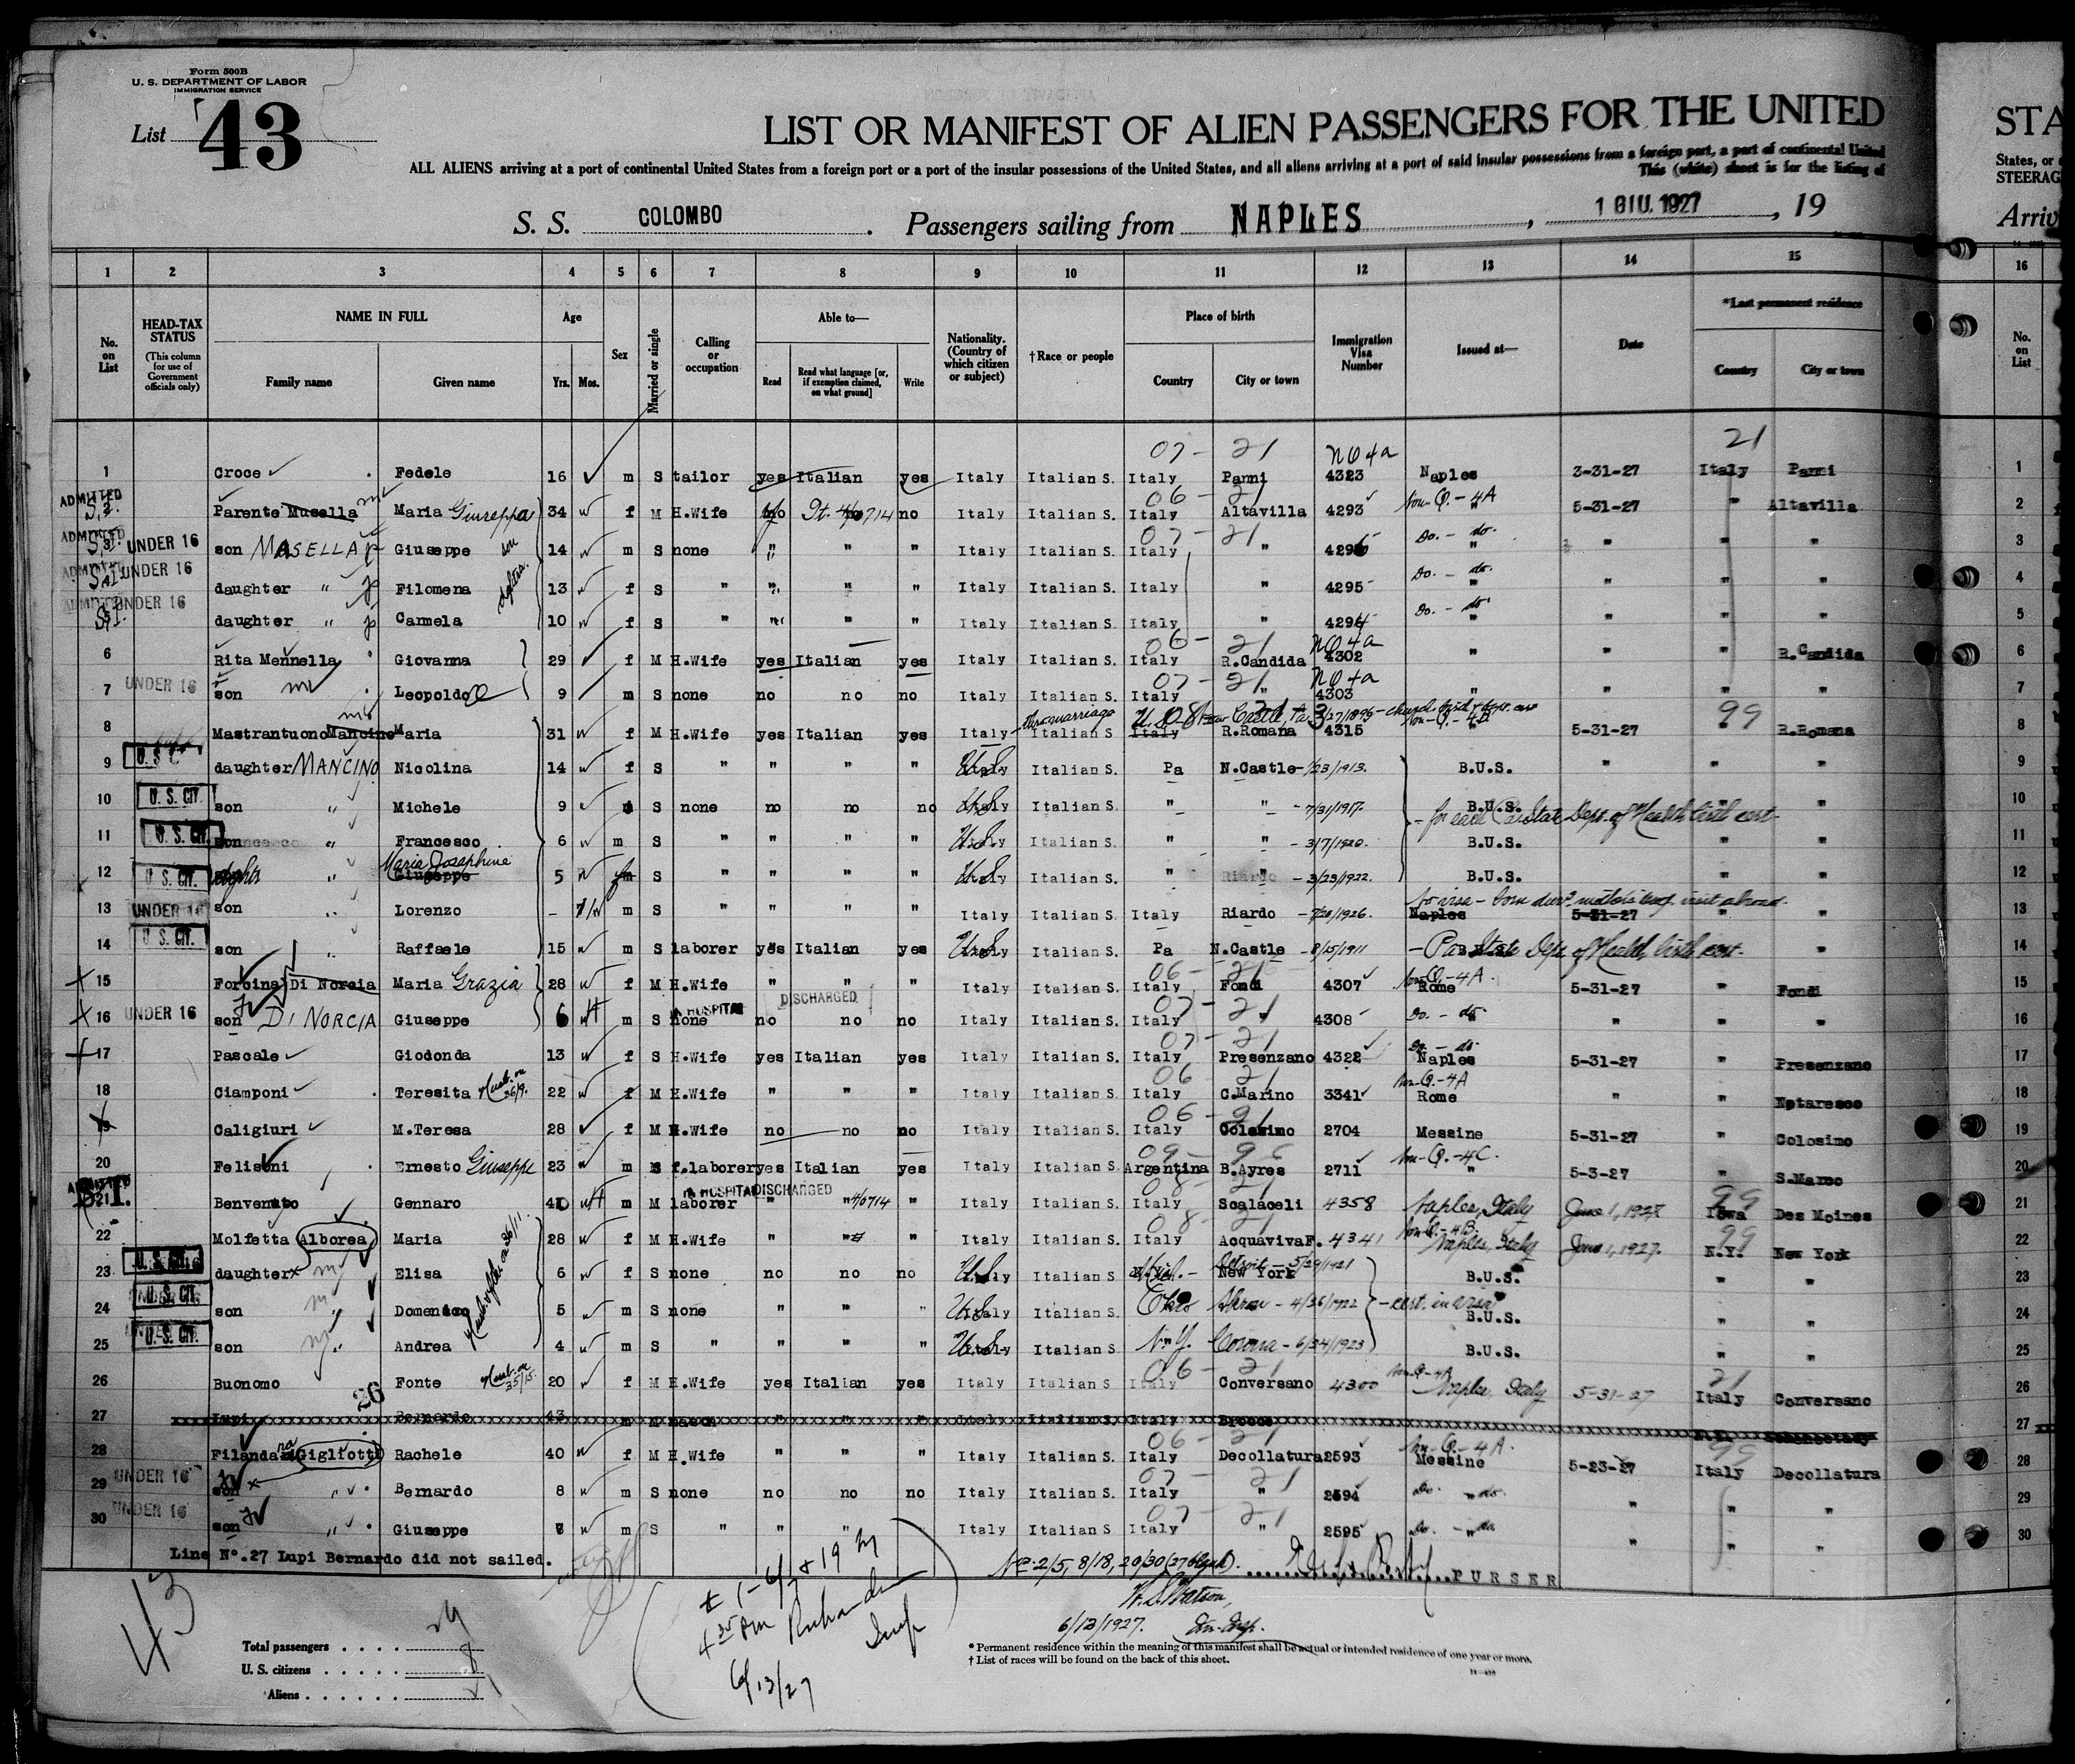 Form 500B
U. S. DEPARTMENT OF LABOR
IMMIGRATION SERVICE
List 43
LIST OR MANIFEST OF ALIEN PASSENGERS FOR THE UNITED
STA
ALL ALIENS arriving at a port of continental United States from a foreign port or a part of the insular possessions of the United States, and all aliens arriving at a port of said insular possessions from a foreign port, a part of continental United
States, or
This (white) sheet is for the listing of
STEERAG
S. S. COLOMBO . Passengers sailing from NAPLES , 1 GIU. 1927 , 19
Arriv
1 2 3 4 5 6 7 8 9 10 11 12 13 14 15 16
No. on List
HEAD-TAX STATUS (This column for use of Government officials only)
NAME IN FULL Family name Given name
Age Yrs. Mos.
Sex
Married or single
Calling or occupation
Able to— Read Read what language [or, if exemption claimed, on what ground] Write
Nationality. (Country of which citizen or subject)
† Race or people
Place of birth Country City or town
Immigration Visa Number
Issued at—
Date
*Last permanent residence Country City or town
No. on List
07 - 21 NQ 4a 21
1 Croce Fedele 16 m S tailor yes Italian yes Italy Italian S. Italy Panni 4323 Naples 3-31-27 Italy Panni 1
ADMITTED 06 - 21 Non-Q.-4A
2 Parente Musella Maria Giuseppa 34 f M H.Wife no It. no Italy Italian S. Italy Altavilla 4293 " 5-31-27 " Altavilla 2
ADMITTED 07 - 21 Do. - do.
3 UNDER 16 son MASELLA Giuseppe son 14 m S none " " " Italy Italian S. Italy " " " " " 3
ADMITTED Do. - do.
4 UNDER 16 daughter " Filomena 13 f S " " " " Italy Italian S. Italy " 4295 " " " " 4
ADMITTED Do. - do.
5 UNDER 16 daughter " Carmela 10 f S " " " " Italy Italian S. Italy " 4294 " " " " 5
06 - 21 NQ 4a
6 Rita Mennella Giovanna 29 f M H.Wife yes Italian yes Italy Italian S. Italy R.Candida 4302 " " " R.Candida 6
07 - 21 NQ 4a
7 UNDER 16 son Leopoldo 9 m S none no no no Italy Italian S. Italy " 4303 " " " " 7
8 Mastrantuono Mancino Maria 31 f M H.Wife yes Italian yes Italy Italian S. Italy R.Romana 4315 " 5-31-27 " R.Romana 8
9 U. S. CIT. daughter MANCINO Nicolina 14 f S " " " " U.S. Italian S. Pa N.Castle - 1/23/1913. B.U.S. " " " 9
10 U. S. CIT. son " Michele 9 S none no no no U.S. Italian S. " " - 7/31/1917. B.U.S. " " 10
11 U. S. CIT. son " Francesco 6 m S " " " " U.S. Italian S. " " - 3/7/1920. B.U.S. " " " 11
Maria Josephine
12 U. S. CIT. " Giuseppe 5 f S " " " " U.S. Italian S. " " - 3/23/1922. B.U.S. " " " 12
13 UNDER 16 son " Lorenzo - m S " " " " Italy Italian S. Italy Riardo - 7/20/1926. Naples 5-31-27 " " 13
14 U. S. CIT. son " Raffaele 15 m S laborer yes Italian yes U.S. Italian S. Pa N.Castle - 8/15/1911 - Pa State Dept. of Health, birth cert. " 14
06 - 21 Non-Q-4A.
15 Forcina Di Norcia Maria Grazia 28 f M H.Wife " " " Italy Italian S. Italy Fondi 4307 Rome 5-31-27 " Fondi 15
IN HOSPITAL DISCHARGED 07 - 21
16 UNDER 16 son DI NORCIA Giuseppe 6 m S none no no no Italy Italian S. Italy " 4308 Do. - do. " " " 16
07 - 21 Do - do
17 Pascale Giodonda 13 f S H.Wife yes Italian yes Italy Italian S. Italy Presenzano 4322 Naples 5-31-27 " Presenzano 17
06 21 Non-Q.-4A
18 Ciamponi Teresita 22 f M H.Wife " " " Italy Italian S. Italy C.Marino 3341 Rome " " Notaresco 18
06 - 21
19 Caligiuri M.Teresa 28 f M H.Wife no no no Italy Italian S. Italy Colosimo 2704 Messine 5-31-27 " Colosimo 19
Non-Q.-4C.
20 Felisoni Ernesto Giuseppe 23 m S f.laborer yes Italian yes Italy Italian S. Argentina B.Ayres 2711 " 5-3-27 " S.Marco 20
ADMITTED IN HOSPITAL DISCHARGED 99
21 Benvenuto Gennaro m M laborer " " " Italy Italian S. Italy Scalaceli 4358 Naples, Italy June 1, 1927 Iowa Des Moines 21
Non-Q.-4B. 99
22 Molfetta Alborea Maria 28 f M H.Wife " " " Italy Italian S. Italy AcquavivaF. 4341 Naples, Italy June 1, 1927. N.Y. New York 22
23 U. S. CIT. daughter Elisa 6 f S none no no no U.S. Italian S. Mich. - Detroit - 5/29/1921 New York B.U.S. " " 23
24 U. S. CIT. son " Domenico 5 m S none " " " U.S. Italian S. Ohio Akron - 4/26/1922 B.U.S. " " 24
25 U. S. CIT. son " Andrea 4 m S " " " " U.S. Italian S. N.Y. Corona - 6/24/1923 B.U.S. " " 25
06 - 21 Non-Q-4A 21
26 Buonomo Fonte 20 f M H.Wife yes Italian yes Italy Italian S Italy Conversano 4300 Naples, Italy 5-31-27 Italy Conversano 26
26
27 Lupi Bernardo 43 m M mason " " " Italy Italian S. Italy 27
06 - 21 Non-Q.-4A. 99
28 Filanda Gigliotti Rachele 40 f M H.Wife " " " Italy Italian S. Italy Decollatura 2593 Messine 5-23-27 Italy Decollatura 28
07 - 21
29 UNDER 16 son " Bernardo 8 m S none no no no Italy Italian S. Italy " 2594 Do. " do. " " " 29
07 - 21
30 UNDER 16 son " Giuseppe m S " " " Italy Italian S. Italy " 2595 Do. - " do " " " 30
Line N°.27 Lupi Bernardo did not sailed.
Nos. 2/5, 8/18, 20/30 (27 blank). PURSER
W. S. Watson,
6/13/1927. Imm. Insp.
43
6/13/27
Total passengers . . . . 29
U. S. citizens . . . . . 8
Aliens . . . . . . 21
* Permanent residence within the meaning of this manifest shall be actual or intended residence of one year or more.
† List of races will be found on the back of this sheet.